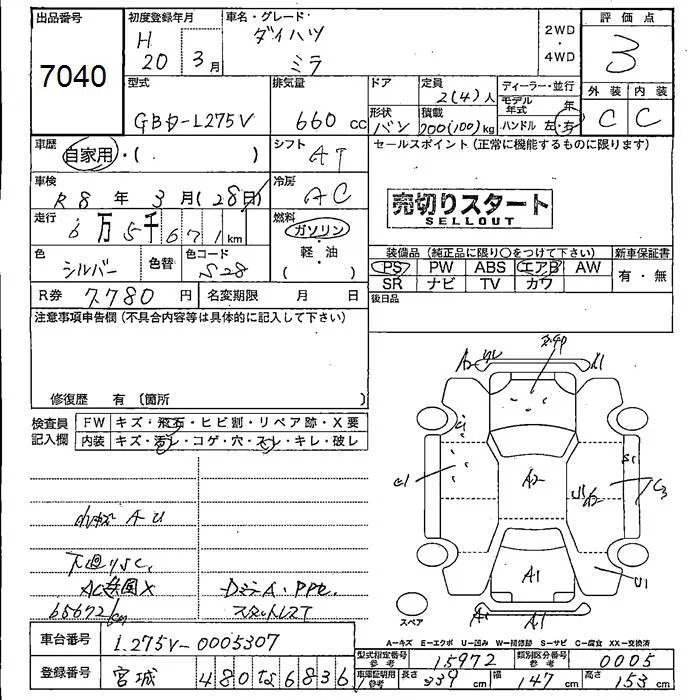 出品番号
7040
初度登録年月
H 20 3月
車名・グレード
ダイハツ
ミラ
2WD
・
4WD
評価点
3
外装 内装
C C
型式
GBD-L275V
排気量
660 cc
ドア
形状
バン
定員
2(4)人
積載
200(100)kg
ディーラー・並行
モデル年式 年
ハンドル 左・右
車歴
自家用・( )
シフト
AT
セールスポイント(正常に機能するものに限ります)
売切りスタート
SELLOUT
車検
R8年 3月(28日)
冷房
AC
走行
6万5千671km
燃料
ガソリン
・
軽・油
( )
色
シルバー
色替
色コード
S28
装備品(純正品に限り○をつけて下さい)
PS PW ABS エアB AW
SR ナビ TV カワ
新車保証書
有・無
R券 7,780円
名変期限 月 日
後日品
注意事項申告欄(不具合内容等は具体的に記入して下さい)
修復歴 有〔箇所 〕
検査員
記入欄
FW キズ・飛石・ヒビ割・リペア跡・X要
内装 キズ・汚レ・コゲ・穴・スレ・キレ・破レ
AU
下廻りSC
65672/km
スタットレスT
A2
A1
A2
A1
U1
S1
スペア
A-キズ E-エクボ U-凹み W-補修跡 S-サビ C-腐食 XX-交換済
車台番号 L275V-0005307
型式指定番号 参考 15972
類別区分番号 参考 0005
登録番号 宮城 480 な 6836
車庫証明用 参考 長さ 339cm 幅 147cm 高さ 153cm